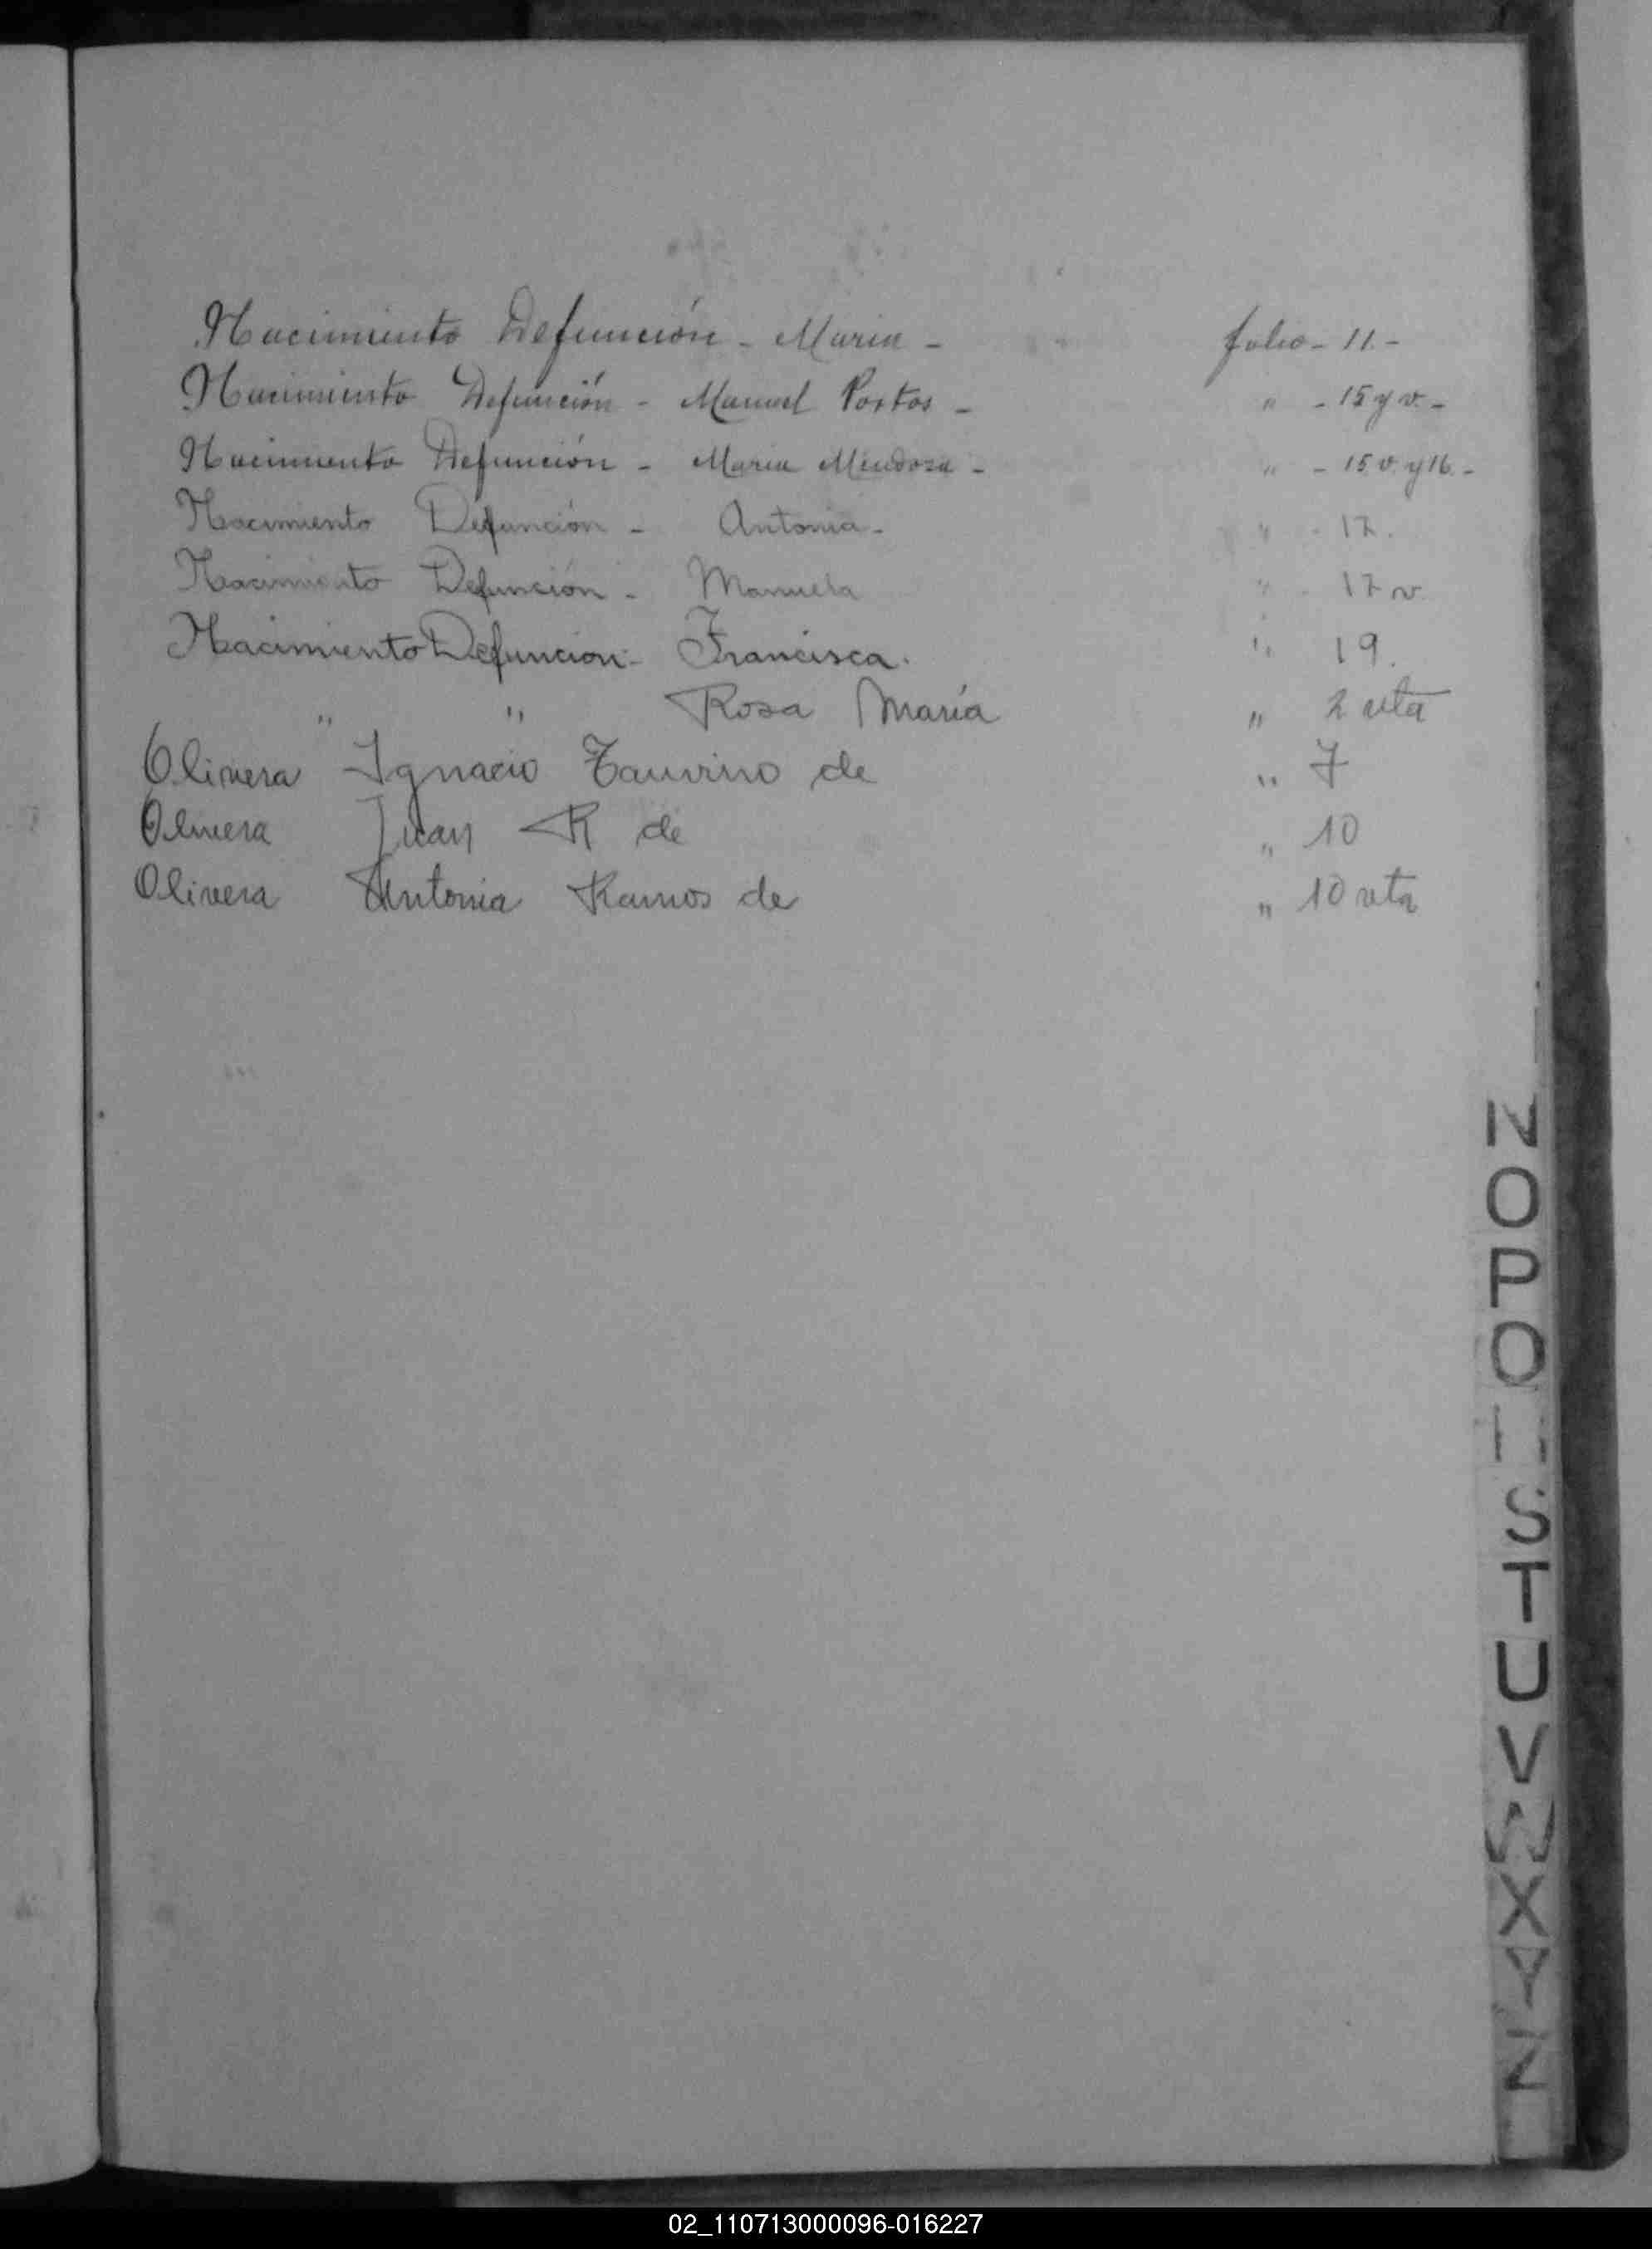 Nacimiento Defunción - Maria - folio - 11. -
Nacimiento Defunción - Manuel Portos - " - 15 y v. -
Nacimiento Defunción - Maria Mendoza - " - 15 v. y 16. -
Nacimiento Defunción - Antonia - " - 17.
Nacimiento Defunción - Manuela " - 17 v
Nacimiento Defuncion - Francisca. " 19.
" " Rosa María " 2 vta
Olivera Ignacio Taurino de " 7
Olivera Juan R de " 10
Olivera Antonia Ramos de " 10 vta
N
O
P
Q
S
T
U
V
W
X
Y
Z
02_110713000096-016227